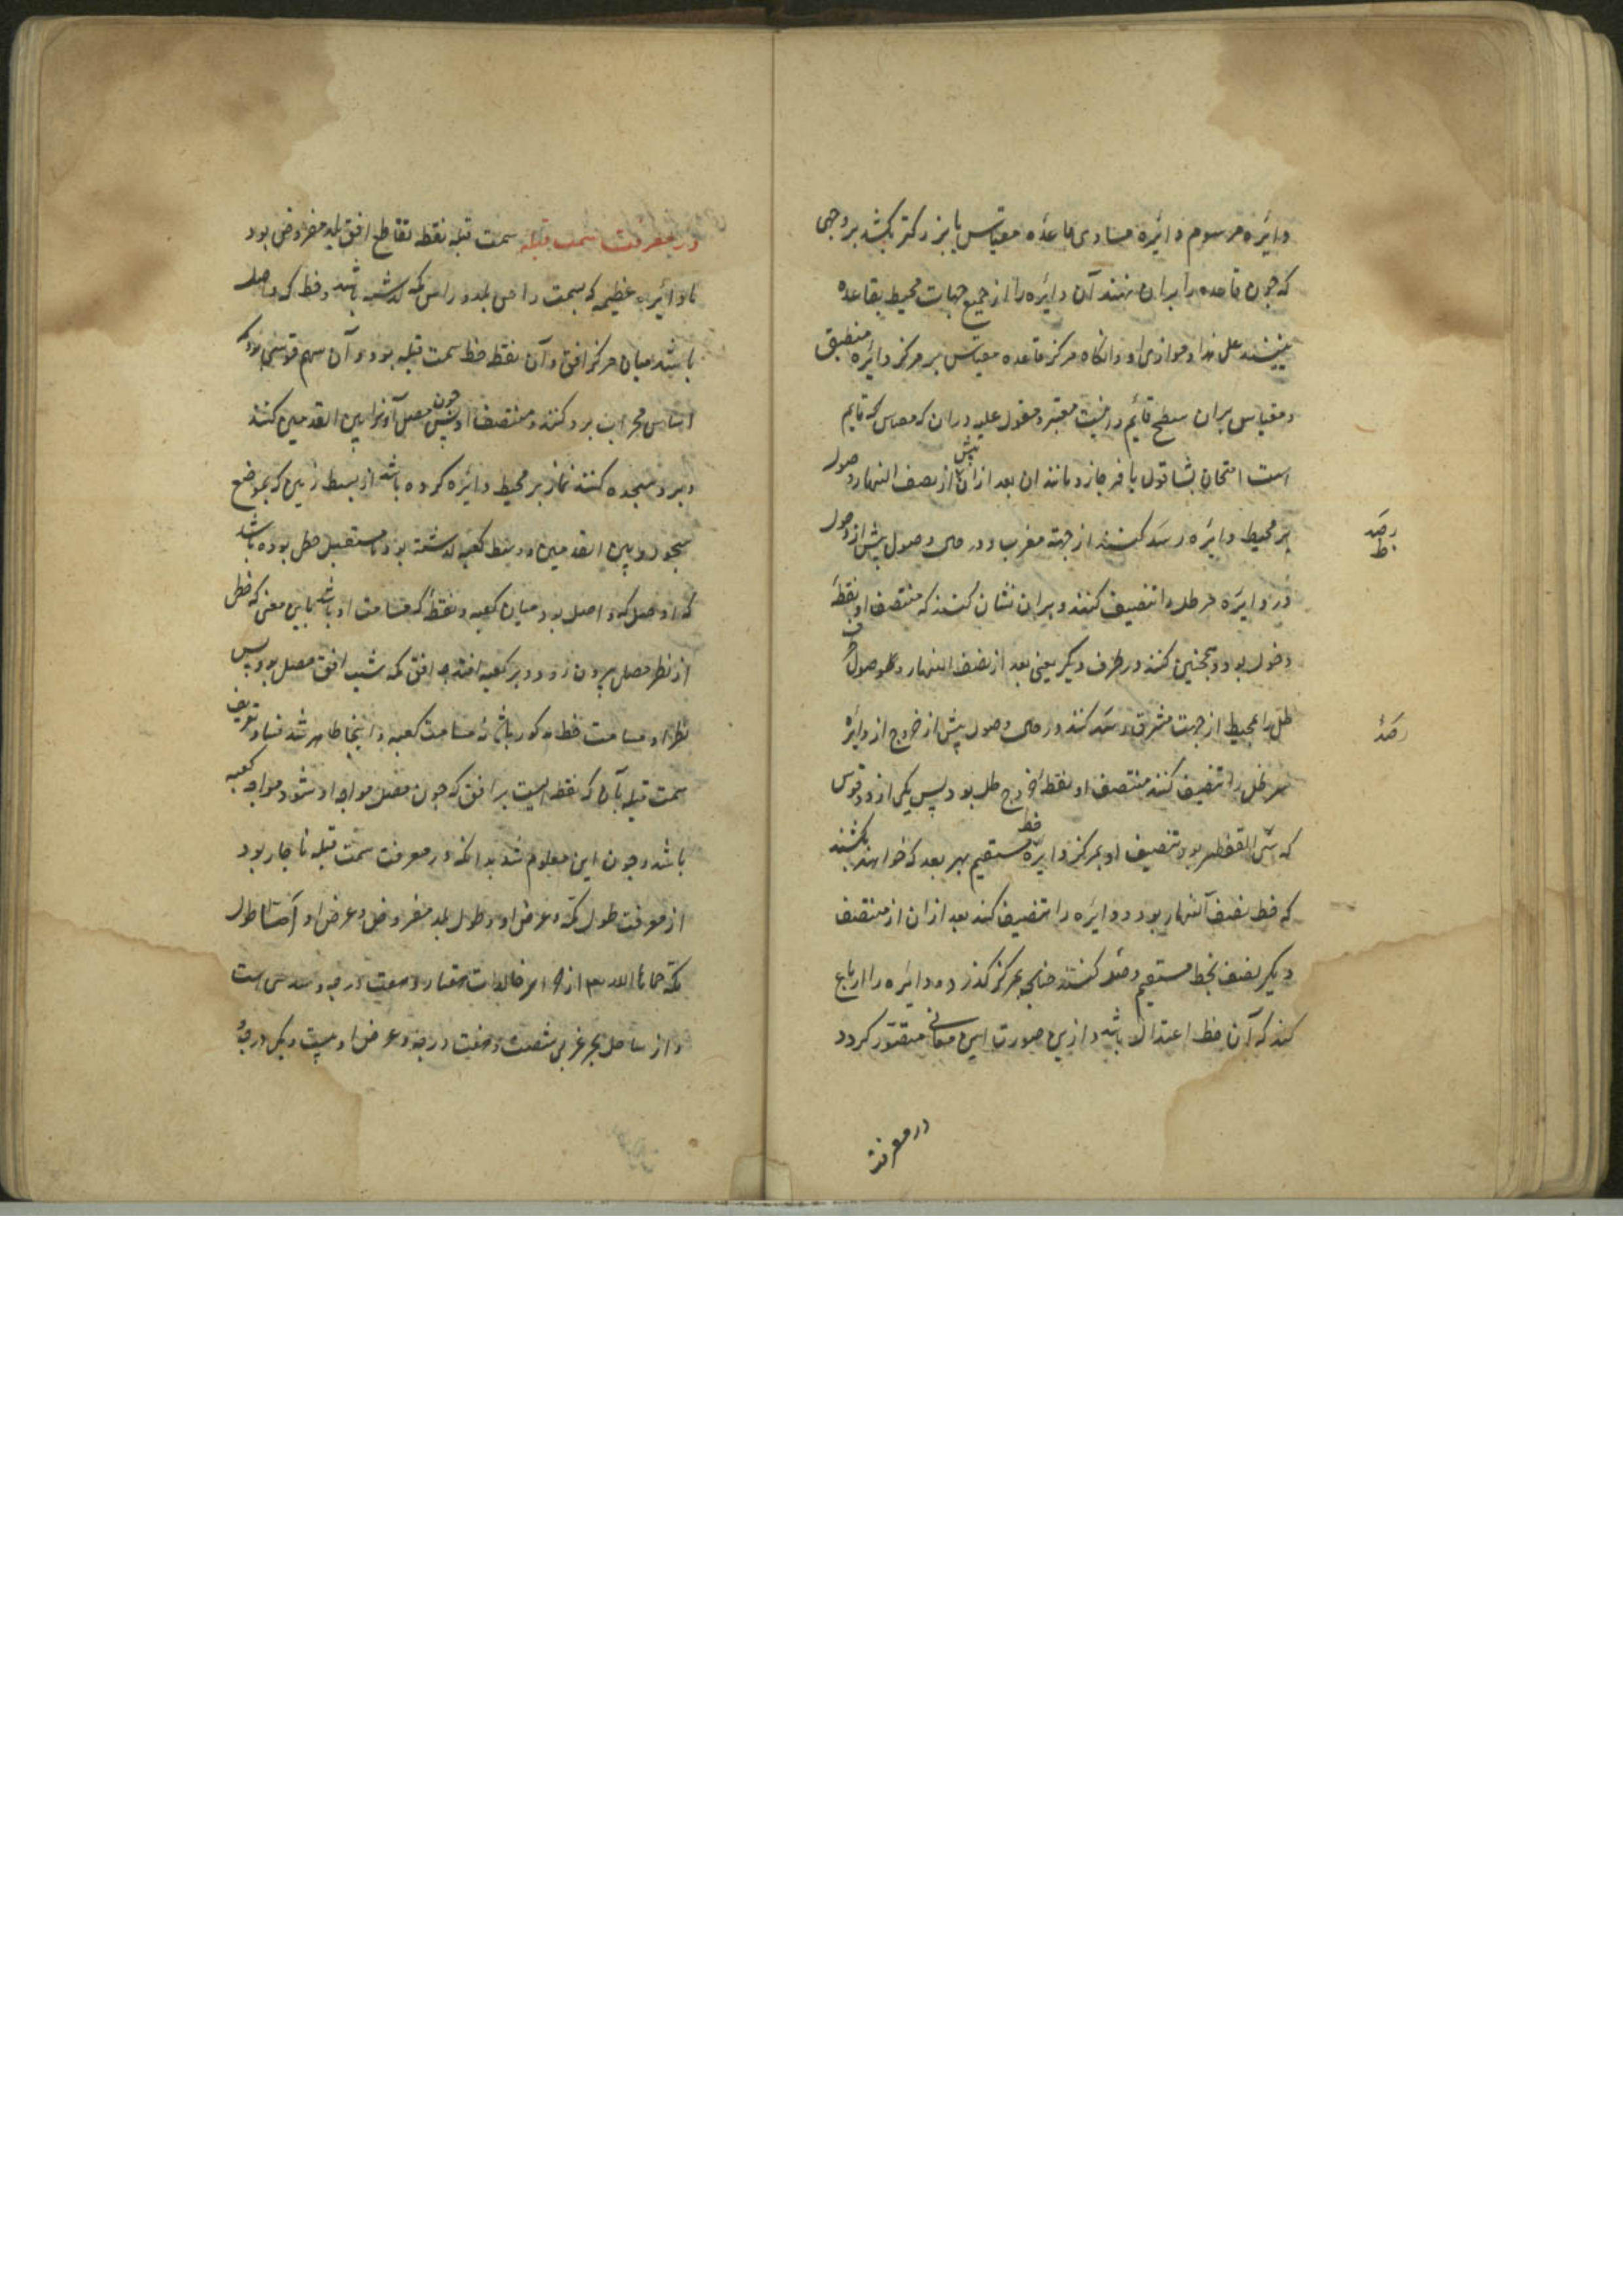 دایره مرسوم دایره مساوی قاعده مقیاس یا بزرکتر بکشند بر وجهی
که چون قاعده را بران نهند آن دایره را از جمیع جهات محیط بقاعده
بینند علی هذا و موازی او و انکاه مرکز قاعده مقیاس بر مرکز دایره منطبق
و مقیاس بران سطح قائم و در معتبر و معول علیه دران که مقیاس که قایم
است امتحان بشاقول یا فرجار و مانند ان بعد ازان پیش از نصف النهار وصول
بر محیط دایره رصد کنند از جهة مغرب و در وصول پیش از دخول
در دایره سر ظل را تنصیف کنند و بران نشان کنند که منتصف او نقطهٔ
دخول بود و همچنین کنند در طرف دیکر یعنی بعد از نصف النهار وصول
ظل را بمحیط از جهت مشرق رصد کنند و در وصول پیش از خروج از دایره
سر ظل را تنصیف کنند منتصف او نقطهٔ خروج ظل بود پس یکی از دو قوس
که بین النقطتین بود تنصیف او بمرکز دایره خط مستقیم بهر بعد که خواهند بکشند
که خط نصف النهار بود و دایره را تنصیف کند بعد ازان از منتصف
دیکر نصف بخط مستقیم وصل کنند چنانچه بمرکز کذرد و دایره را ارباع
کند که آن خط اعتدال باشد و ازین صورت این معانی متصور کردد
رصد
ط
رصد
در معرفت
در معرفت سمت قبله سمت قبله نقطه تقاطع افق بلد مفروض بود
با دایره عظیمه که بسمت راس بلد و راس مکه کذشته باشد و خط که واصل
باشد میان مرکز افق و آن نقطه خط سمت قبله بود و آن سهم قوسی بود که
اساس محراب برو کنند و منتصف او چون مصلی آنرا بین القدمین کند
و برو سجده کنند نماز بر محیط دایره کرده باشد از بسیط زمین که بموضع
سجود و بین القدمین و وسط کعبه کذشته بود و مستقبل خطی بوده باشد
که او واصل بود میان کعبه و نقطهٔ که مسامت او باشد باین معنی که خطی
از نظر مصلی بیرون رود و بر کعبه افتد چه افق مکه شیب افق مصلی بود پس
نظر او مسامت خط مذکور باشد نه مسامت کعبه و از اینجا ظاهر شد فساد تعریف
سمت قبله بآن که نقطه ایست بر افق که چون مصلی مواجه او شود مواجه کعبه
باشد و چون این معلوم شد بدانکه در معرفت سمت قبله ناچار بود
از معرفت طول مکه و عرض او و طول بلد مفروض و عرض او اما طول
مکه حماها الله تعالی از جزایر خالدات هفتاد و هفت درجه و سدسی است
و از ساحل بحر غربی شصت و هفت درجه و عرض او بیست و یک درجهٔ